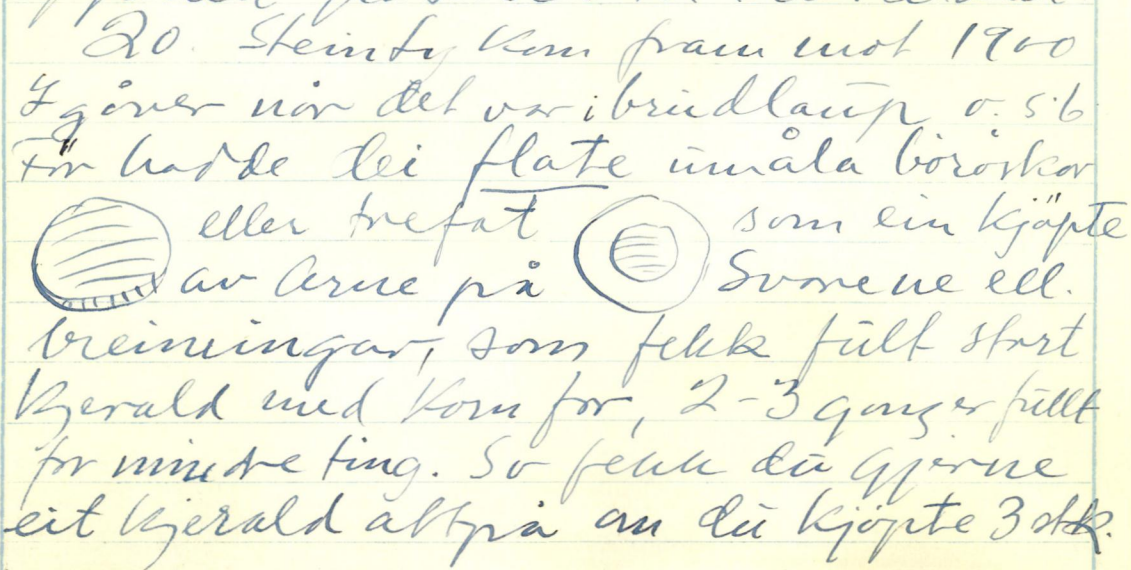 20. Steinty kom fram mot 1900
I gåver når det var i brudlaup o.s.b
Før hadde dei flate umåla
eller trefat som ein kjöpte
av Arne på Svorene ell.
breimingar, som fekk fullt stort
kjerald med korn for, 2-3 gonger fullt
for mindre ting. So fekk du gjerne
eit kjerald attpå om du kjöpte 3 stk.